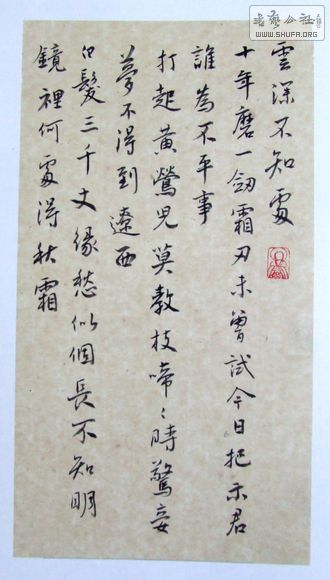 雲深不知處
十年磨一劍霜刃未曾試今日把示君
誰為不平事
打起黃鶯兒莫教枝啼々時驚妾
夢不得到遼西
白髮三千丈緣愁似個長不知明
鏡裡何處得秋霜
书艺公社
WWW.SHUFA.ORG